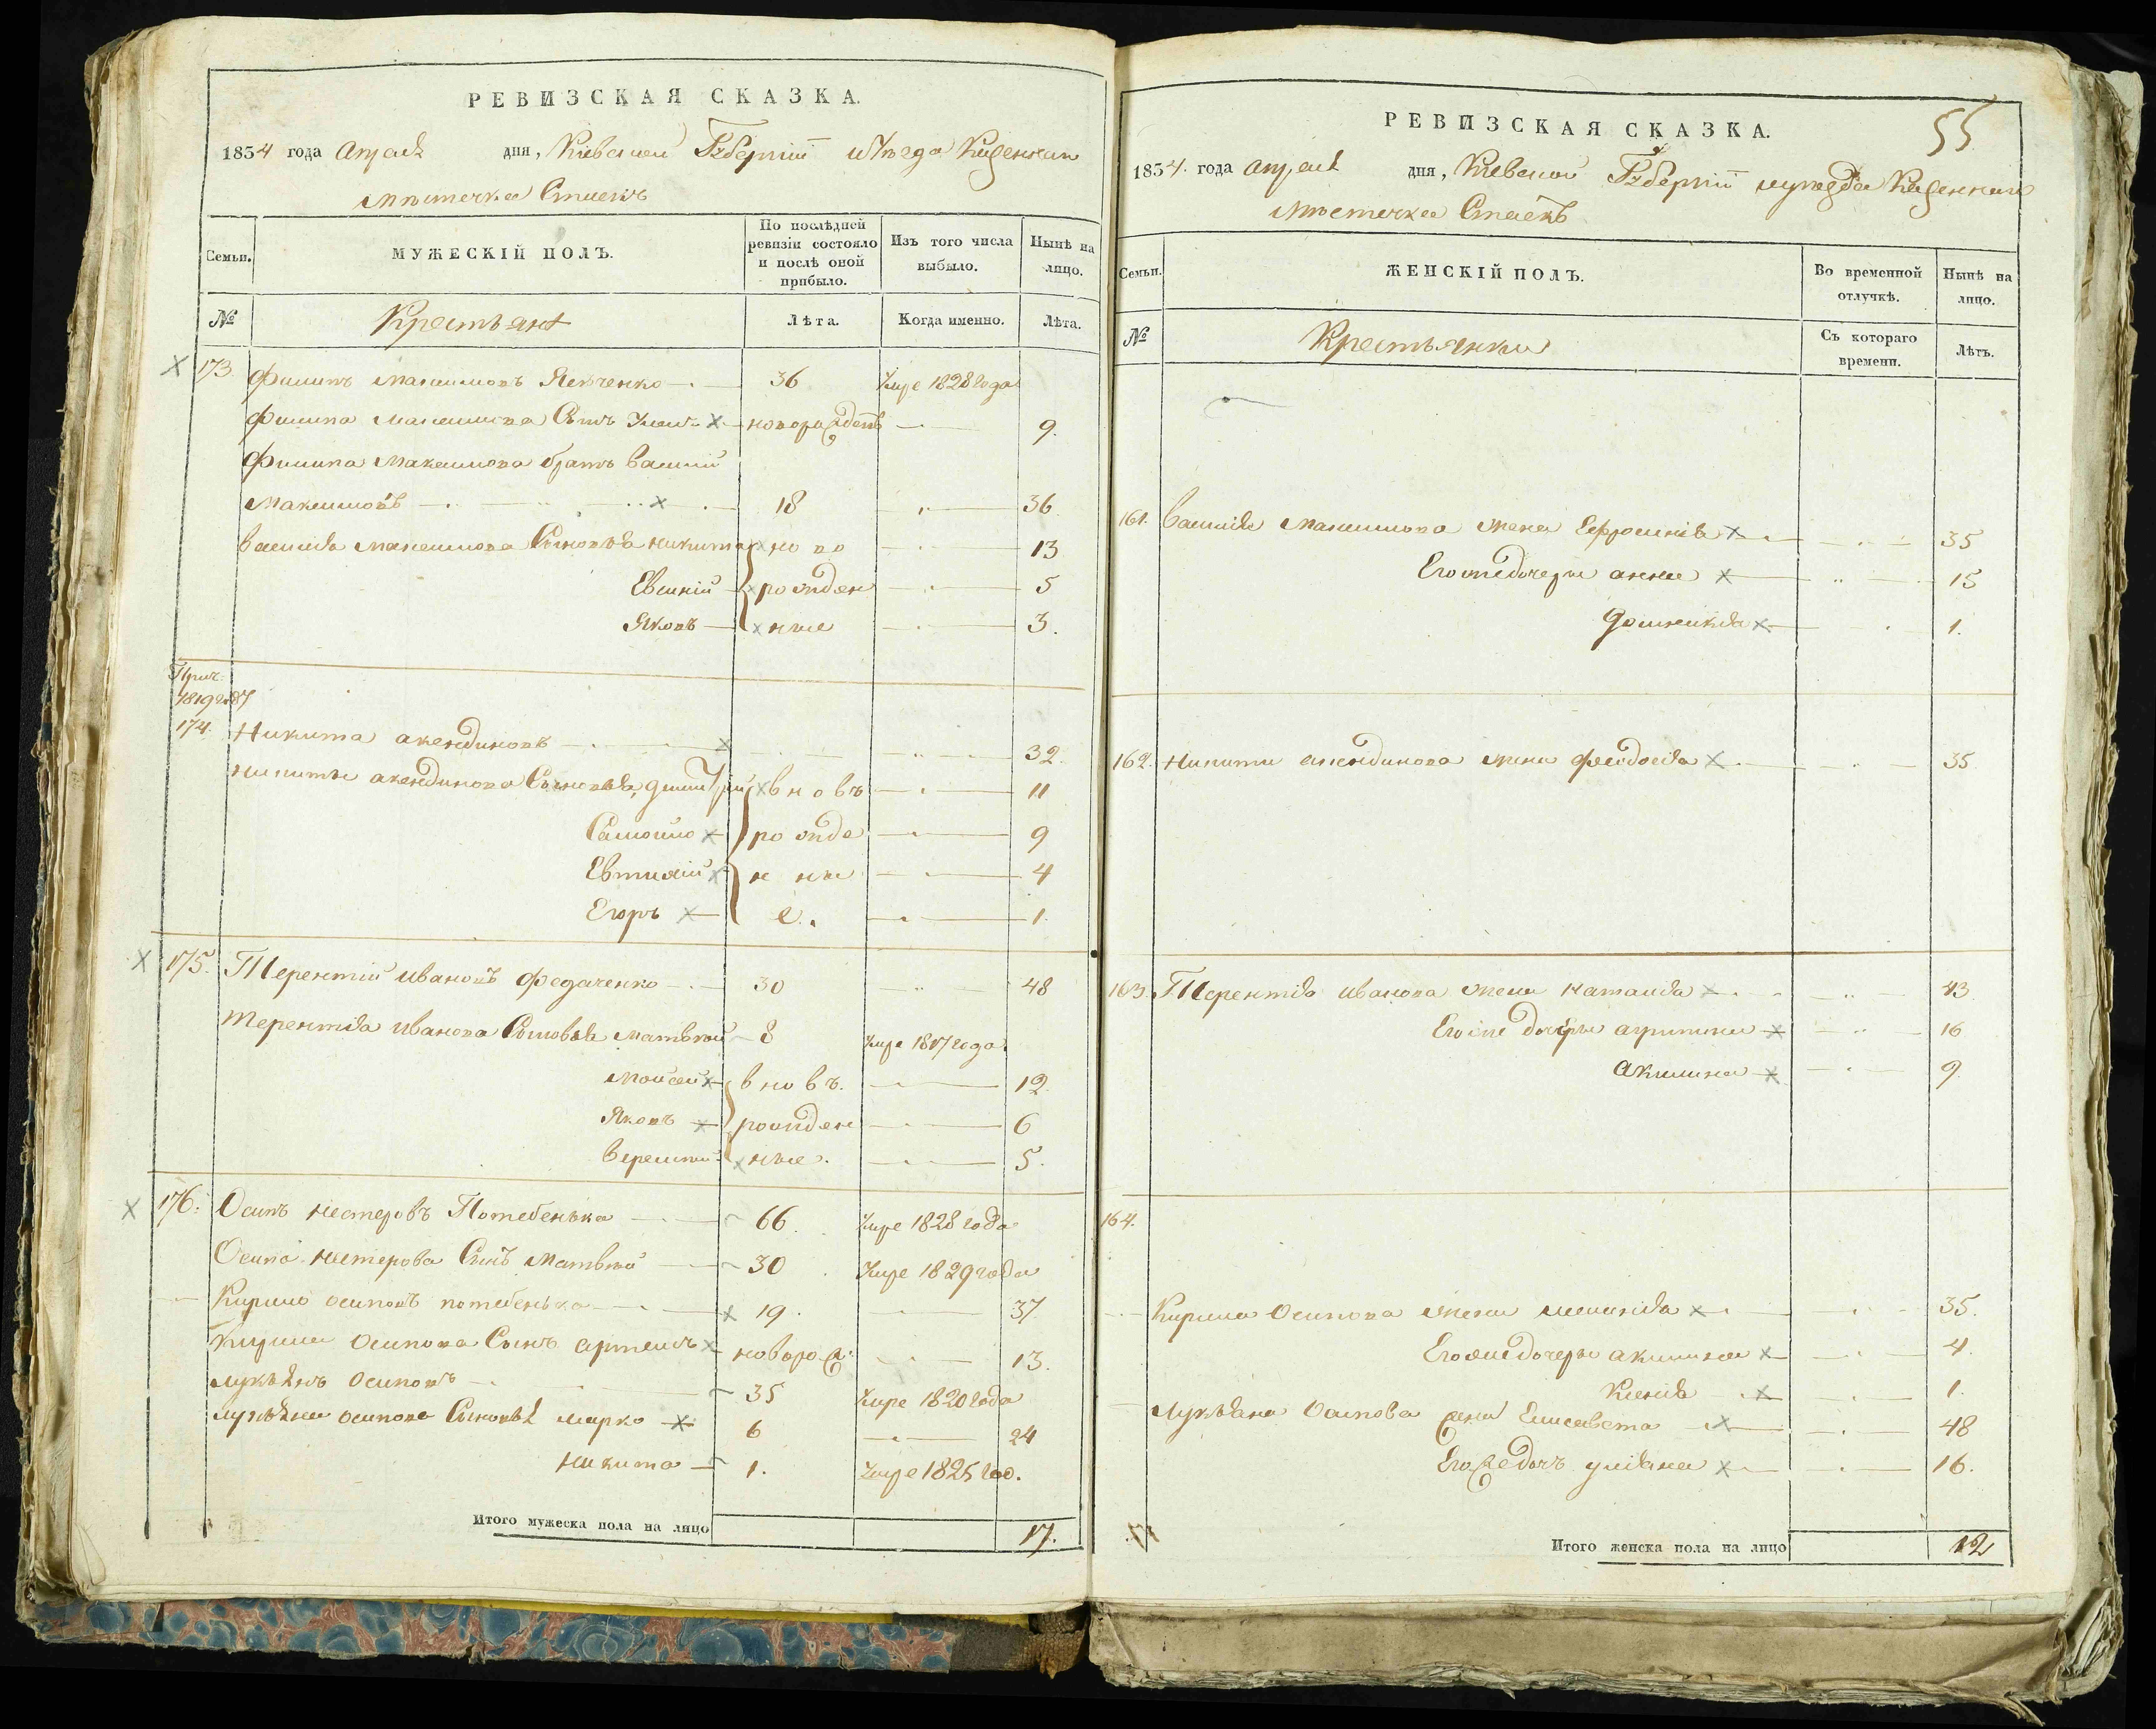 РЕВИЗСКАЯ СКАЗКА.
1834 года Апреля дня, Киевской Губернии и уезда Казенного
местечка Стаекъ
Семьи.
МУЖЕСКІЙ ПОЛЪ.
По послѣдней ревизіи состояло и послѣ оной прибыло.
Изъ того числа выбыло.
Нынѣ на лицо.
№
Крестьяне
Лѣта.
Когда именно.
Лѣта.
173. Филипъ Максимовъ 36 Умре 1828 года
Филипа Максимова Сынъ новорожденъ 9.
Филипа Максимова братъ Василий
Максимовъ 18 36
Василія Максимова Сыновья Никита ново 13
Евсикій рожден 5
Яковъ ные 3.
174. Никита Акендиновъ 32.
Никиты Акендинова Сыновья, Дмитрий вновъ 11
Самойло рожде 9
Евтихій н ны 4
Егоръ е. 1.
175. Терентий Ивановъ Федаченко 30 48
Терентія Иванова Сыновья Матвей 8 Умре 1817 года
Мойсей вновъ. 12.
Яковъ рожден 6
ные. 5.
176. Осипъ Нестеровъ Потебенька 66. Умре 1828 года
Осипа Нестерова Сынъ Матвей 30 Умре 1829 года
Кирило Осиповъ Потебенька 19. 37
Кирила Осипова Сынъ Артемъ новорож. 13.
Лукьянъ Осиповъ 35 Умре 1820 года
Лукьяна Осипова Сыновья Марко 6 24
Никита 1. Умре 1825 год.
Итого мужеска пола на лицо 17.
55
РЕВИЗСКАЯ СКАЗКА.
1834. года Апреля дня, Киевской Губернии и уезда Казенного
Местечка Стаекъ
Семьи.
ЖЕНСКІЙ ПОЛЪ.
Во временной отлучкѣ.
Нынѣ на лицо.
№
Крестьянки
Съ котораго времени.
Лѣтъ.
161. Василія Максимова жена Ефросинія 35
Егоже дочери Анна 15
Домникія 1.
162. Никиты Акендинова жена Феодосія 35
163. Терентія Иванова жена Наталія 43
Егоже дочери Агрипина 16
Акилина 9.
164.
Кирила Осипова жена Меланія 35.
Егоже дочери Акилина 4.
Ксенія 1.
Лукьяна Осипова жена Елисавета 48
Егоже дочъ Уліана 16.
Итого женска пола на лицо 12